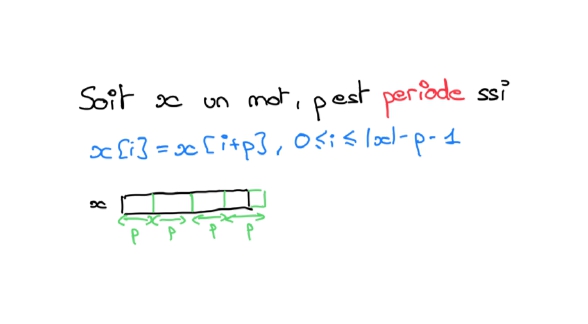 Soit x un mot, p est periode ssi
x[i] = x[i+p], 0 ≤ i ≤ |x| - p - 1
x
p p p p